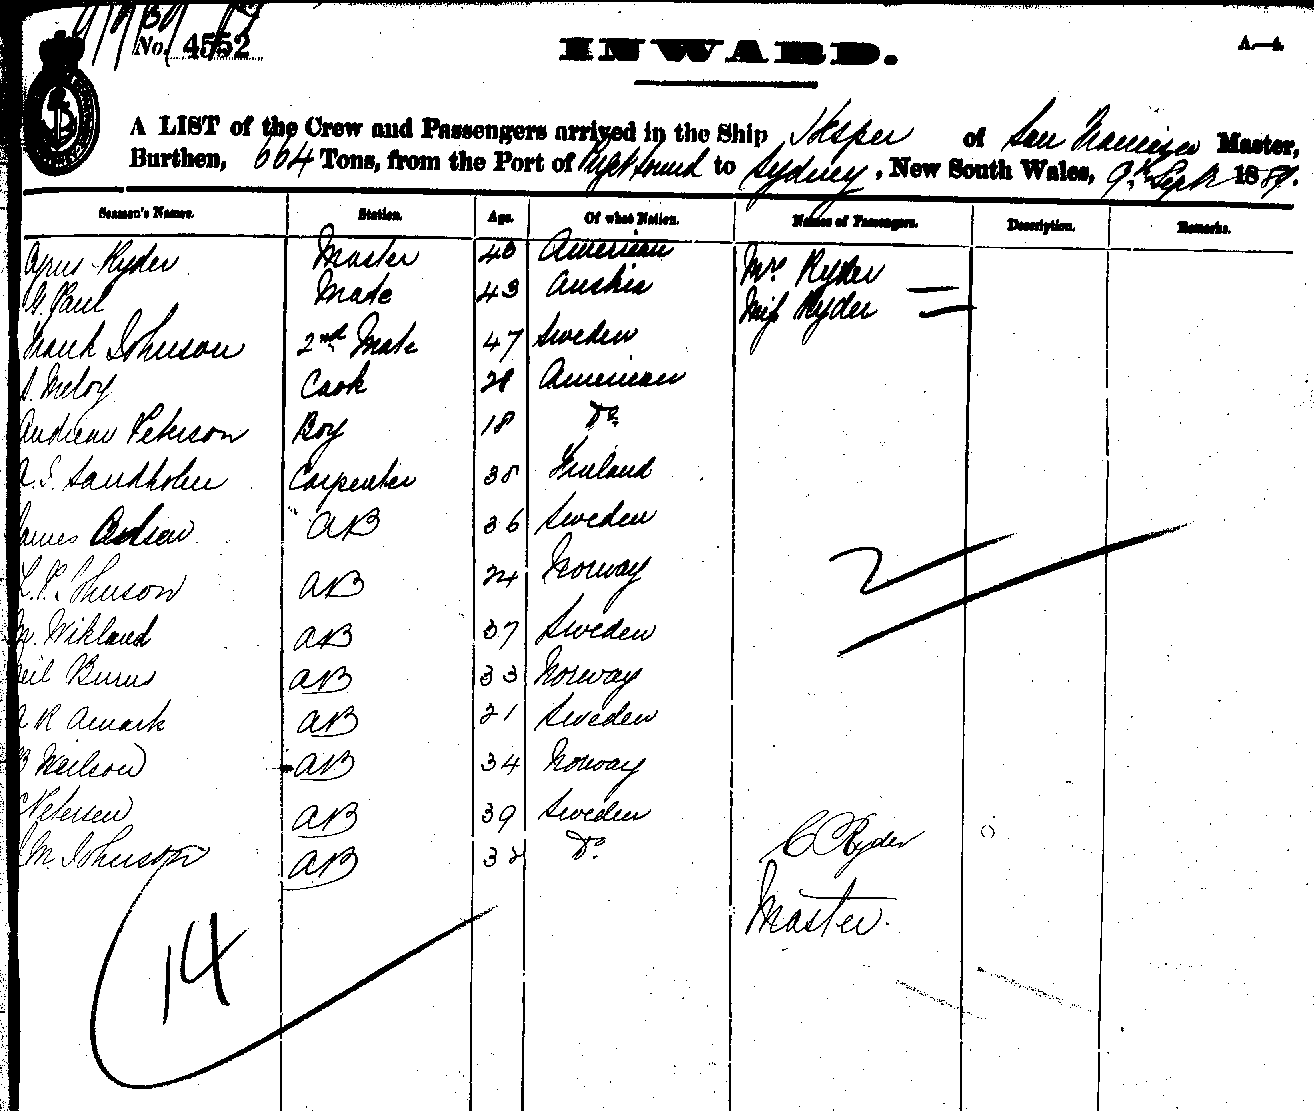 No. 4552
INWARD.
A—4.
A LIST of the Crew and Passengers arrived in the Ship Hesper of San Francisco Master,
Burthen, 664 Tons, from the Port of Puget Sound to Sydney, New South Wales, 9th Sept 1889.
Seamen's Names. Station. Age. Of what Nation. Names of Passengers. Description. Remarks.
Ryder Master 40 American Mrs Ryder —
Paul Mate 43 Austria Miss Ryder —
Frank Johnson 2nd Mate 47 Sweden
S. Meloy Cook 28 American
Andrew Peterson Boy 18 Do
A. S. Sandholm Carpenter 38 Finland
James AB 36 Sweden
L. P. Johnson AB 24 Norway
M. Wikland AB 37 Sweden
Neil Burns AB 33 Norway
A R Amark AB 21 Sweden
B Neilson AB 34 Norway
C Petersen AB 39 Sweden
J. M. Johnson AB 32 Do
2
C C Ryder
Master.
14